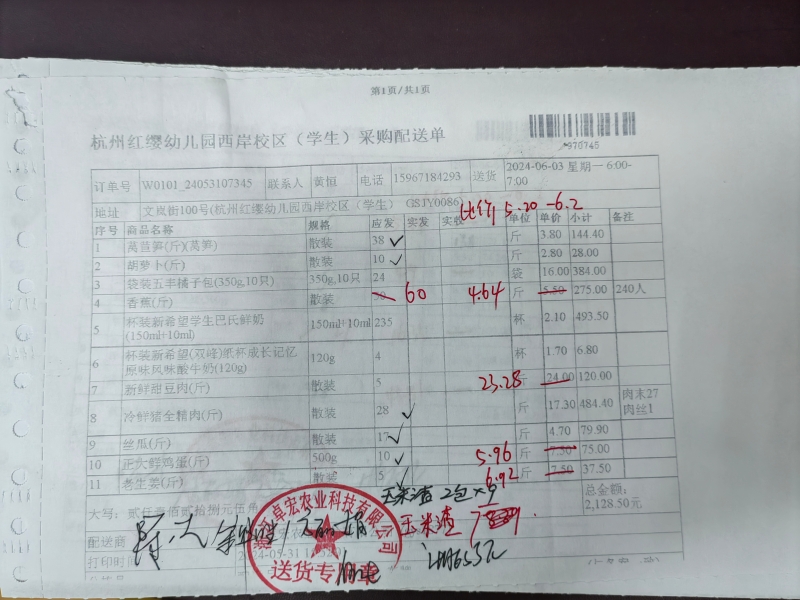 第1页/共1页
杭州红缨幼儿园西岸校区（学生）采购配送单
970745
订单号 W0101_24053107345 联系人 黄恒 电话 15967184293 送货 2024-06-03 星期一 6:00-7:00
地址 文岚街100号(杭州红缨幼儿园西岸校区（学生） GSJY0086)
5.20-6.2
序号 商品名称 规格 应发 实发 实收 单位 单价 小计 备注
1 莴苣笋(斤)(莴笋) 散装 38 斤 3.80 144.40
2 胡萝卜(斤) 散装 10 斤 2.80 28.00
3 袋装五丰橘子包(350g,10只) 350g,10只 24 袋 16.00 384.00
4 香蕉(斤) 散装 60 4.64 斤 5.50 275.00 240人
5 杯装新希望学生巴氏鲜奶(150ml+10ml) 150ml+10ml 235 杯 2.10 493.50
6 杯装新希望(双峰)纸杯成长记忆原味风味酸牛奶(120g) 120g 4 杯 1.70 6.80
7 新鲜甜豆肉(斤) 散装 5 23.28 斤 24.00 120.00
8 冷鲜猪全精肉(斤) 散装 28 斤 17.30 484.40 肉末27 肉丝1
9 丝瓜(斤) 散装 17 斤 4.70 79.90
10 正大鲜鸡蛋(斤) 500g 10 5.96 斤 7.50 75.00
11 老生姜(斤) 散装 5 6.92 斤 7.50 37.50
大写：贰仟壹佰贰拾捌元伍角
总金额：2,128.50元
玉米渣 2包×9
玉米渣
配送商
打印时间 2024-05-31
卓宏农业科技有限公司
送货专用章